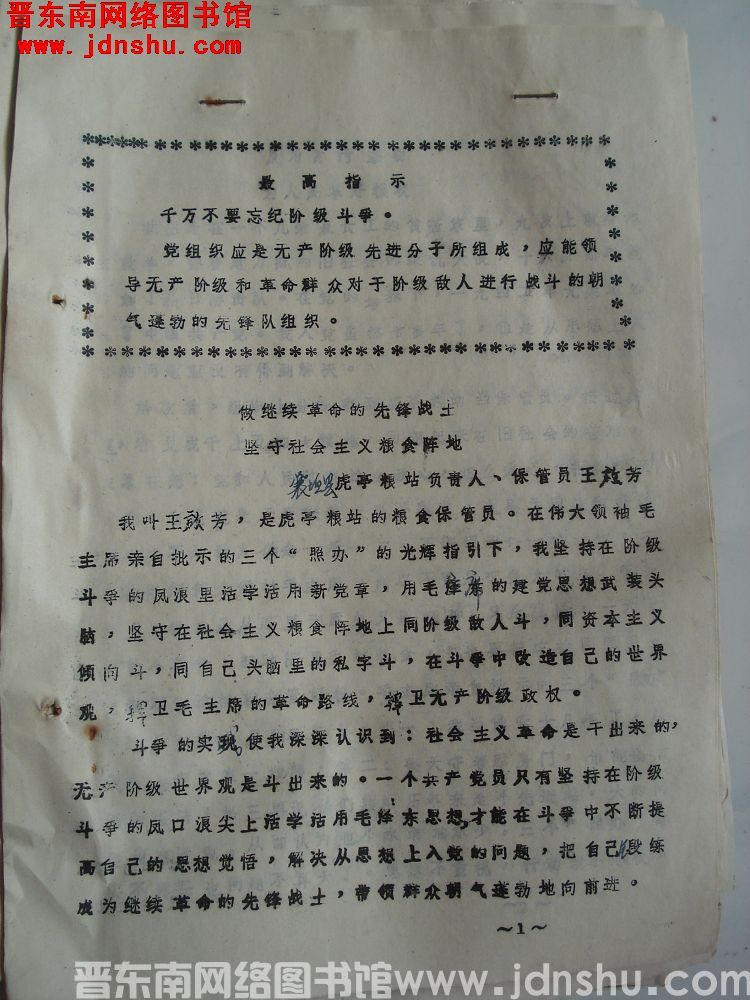 晋东南网络图书馆
www.jdnshu.com
最高指示
千万不要忘纪阶级斗争。
党组织应是无产阶级先进分子所组成，应能领
导无产阶级和革命群众对于阶级敌人进行战斗的朝
气蓬勃的先锋队组织。
做继续革命的先锋战士
坚守社会主义粮食阵地
襄垣县虎亭粮站负责人、保管员王效芳
我叫王效芳，是虎亭粮站的粮食保管员。在伟大领袖毛
主席亲自批示的三个“照办”的光辉指引下，我坚持在阶级
斗争的风浪里活学活用新党章，用毛主席的建党思想武装头
脑，坚守在社会主义粮食阵地上同阶级敌人斗，同资本主义
倾向斗，同自己头脑里的私字斗，在斗争中改造自己的世界
观，捍卫毛主席的革命路线，捍卫无产阶级政权。
斗争的实践使我深深认识到：社会主义革命是干出来的，
无产阶级世界观是斗出来的。一个共产党员只有坚持在阶级
斗争的风口浪尖上活学活用毛泽东思想，才能在斗争中不断提
高自己的思想觉悟，解决从思想上入党的问题，把自己锻练
成为继续革命的先锋战士，带领群众朝气蓬勃地向前进。
～1～
晋东南网络图书馆www.jdnshu.com